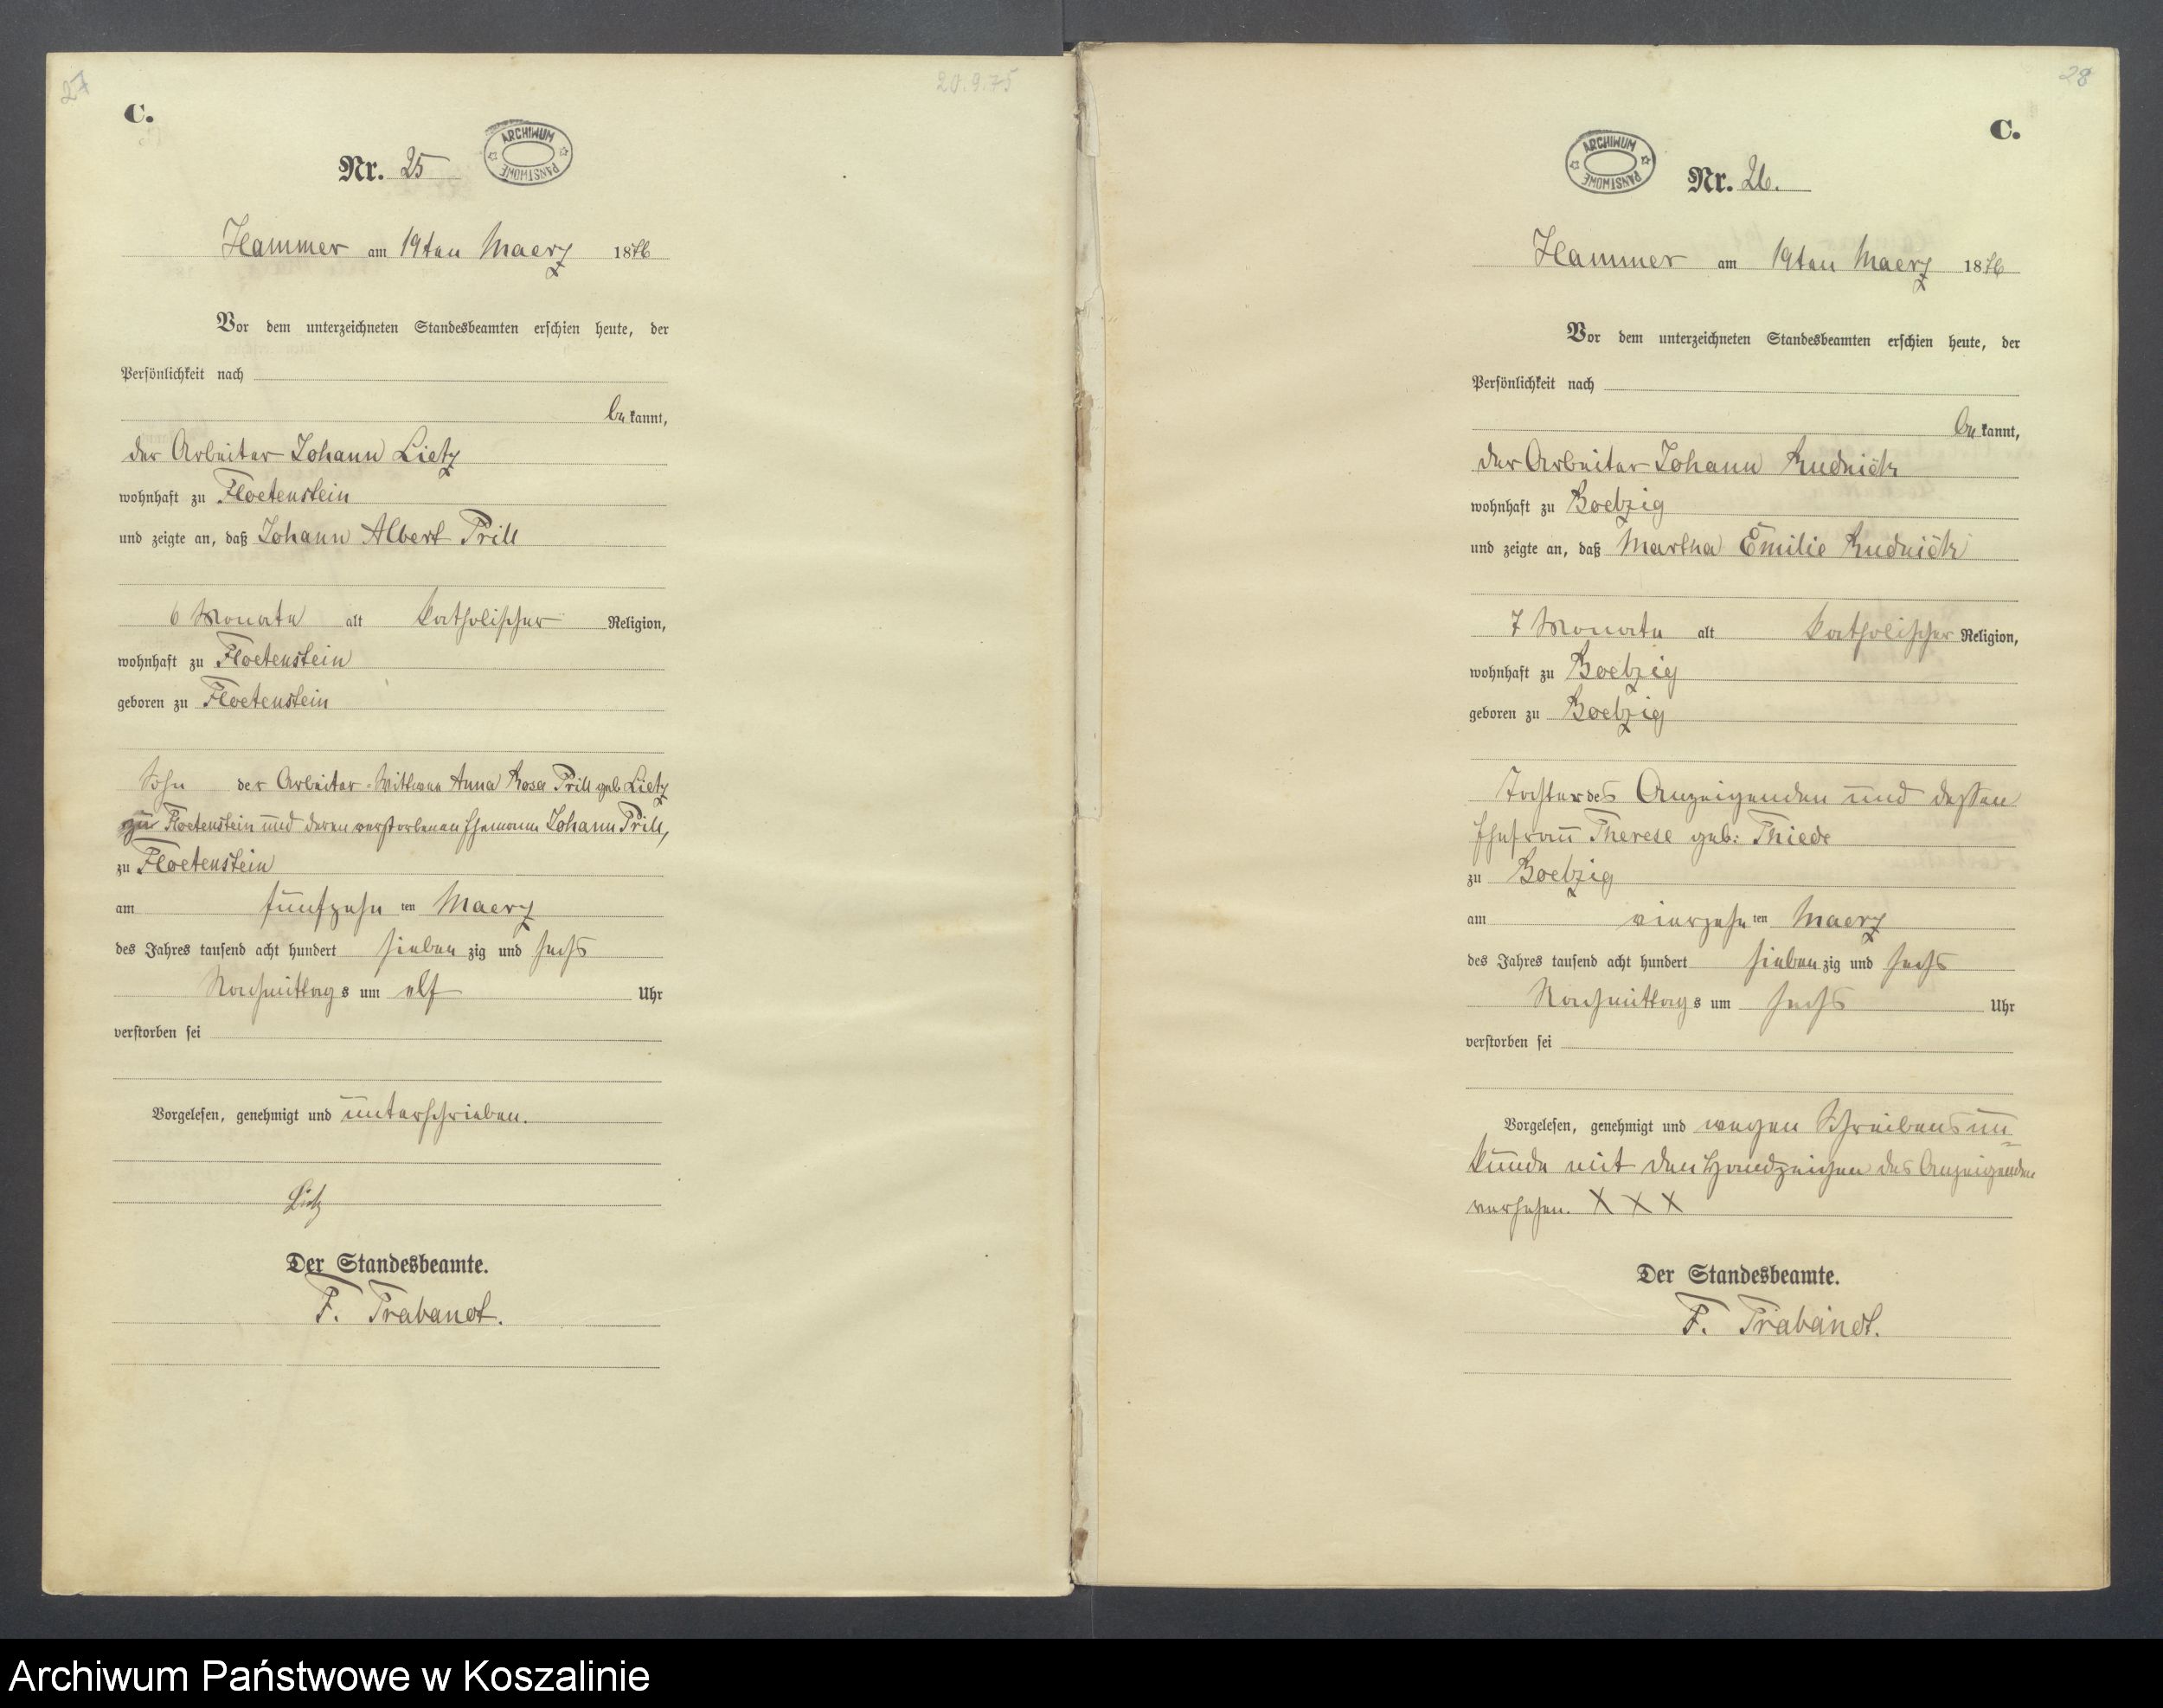 27
20.9.75
C.
ARCHIWUM PAŃSTWOWE
Nr. 25
Hammer am 19ten Maerz 1876
Vor dem unterzeichneten Standesbeamten erschien heute, der
Persönlichkeit nach
be kannt,
der Arbeiter Johann Lietz
wohnhaft zu Floetenstein
und zeigte an, daß Johann Albert Prill
6 Monate alt katholischer Religion,
wohnhaft zu Floetenstein
geboren zu Floetenstein
Sohn der Arbeiter-Wittwe Anna Rosa Prill geb Lietz
zu Floetenstein und deren verstorbenen Ehemann Johann Prill,
zu Floetenstein
am fünfzehn ten Maerz
des Jahres tausend acht hundert sieben zig und sechs
Nachmittag s um elf Uhr
verstorben sei
Vorgelesen, genehmigt und unterschrieben.
Lietz
Der Standesbeamte.
F. Trabandt.
28
C.
ARCHIWUM PAŃSTWOWE
Nr. 26.
Hammer am 19ten Maerz 1876
Vor dem unterzeichneten Standesbeamten erschien heute, der
Persönlichkeit nach
be kannt,
der Arbeiter Johann Rudnick
wohnhaft zu Boelzig
und zeigte an, daß Martha Emilie Rudnick
7 Monate alt katholischer Religion,
wohnhaft zu Boelzig
geboren zu Boelzig
Tochter des Anzeigenden und dessen
Ehefrau Therese geb: Thiede
zu Boelzig
am vierzehn ten Maerz
des Jahres tausend acht hundert sieben zig und sechs
Nachmittag s um sechs Uhr
verstorben sei
Vorgelesen, genehmigt und wegen Schreibensun=
kunde mit den Handzeichen des Anzeigenden
versehen. X X X
Der Standesbeamte.
F. Trabandt.
Archiwum Państwowe w Koszalinie